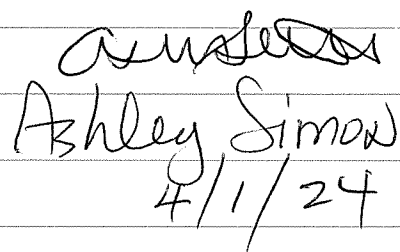 Ashley Simon
4/1/24